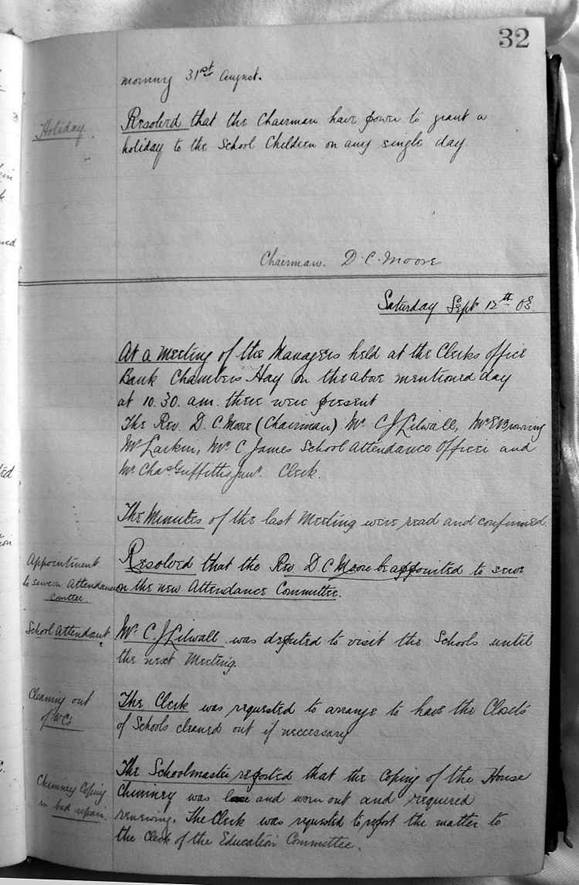 32
morning 31st August.
Holiday
Resolved that the Chairman have power to grant a
holiday to the School Children on any single day
Chairman. D. C. Moore
Saturday Sept 12th 03.
At a meeting of the Managers held at the Clerks office
Bank Chambers Hay on the above mentioned day
at 10.30. am. there were present
The Rev. D. C. Moore (Chairman) Mr C J Lilwall, Mr E Browning
Mr Larkin, Mr C James School Attendance Officer and
Mr Chas Griffiths Junr. Clerk.
The Minutes of the last Meeting were read and confirmed
Appointment
to serve on Attendance
Comttee
Resolved that the Rev D C Moore be appointed to serve
on the new Attendance Committee.
School Attendant
Mr C. J Lilwall was deputed to visit the Schools until
the next Meeting.
Cleaning out
of WCs
The Clerk was requested to arrange to have the Closets
of Schools cleaned out if necessary
Chimney Coping
in bad repair.
The Schoolmaster reported that the Coping of the House
Chimney was and worn out and required
renewing. The Clerk was requested to report the matter to
the Clerk of the Education Committee.